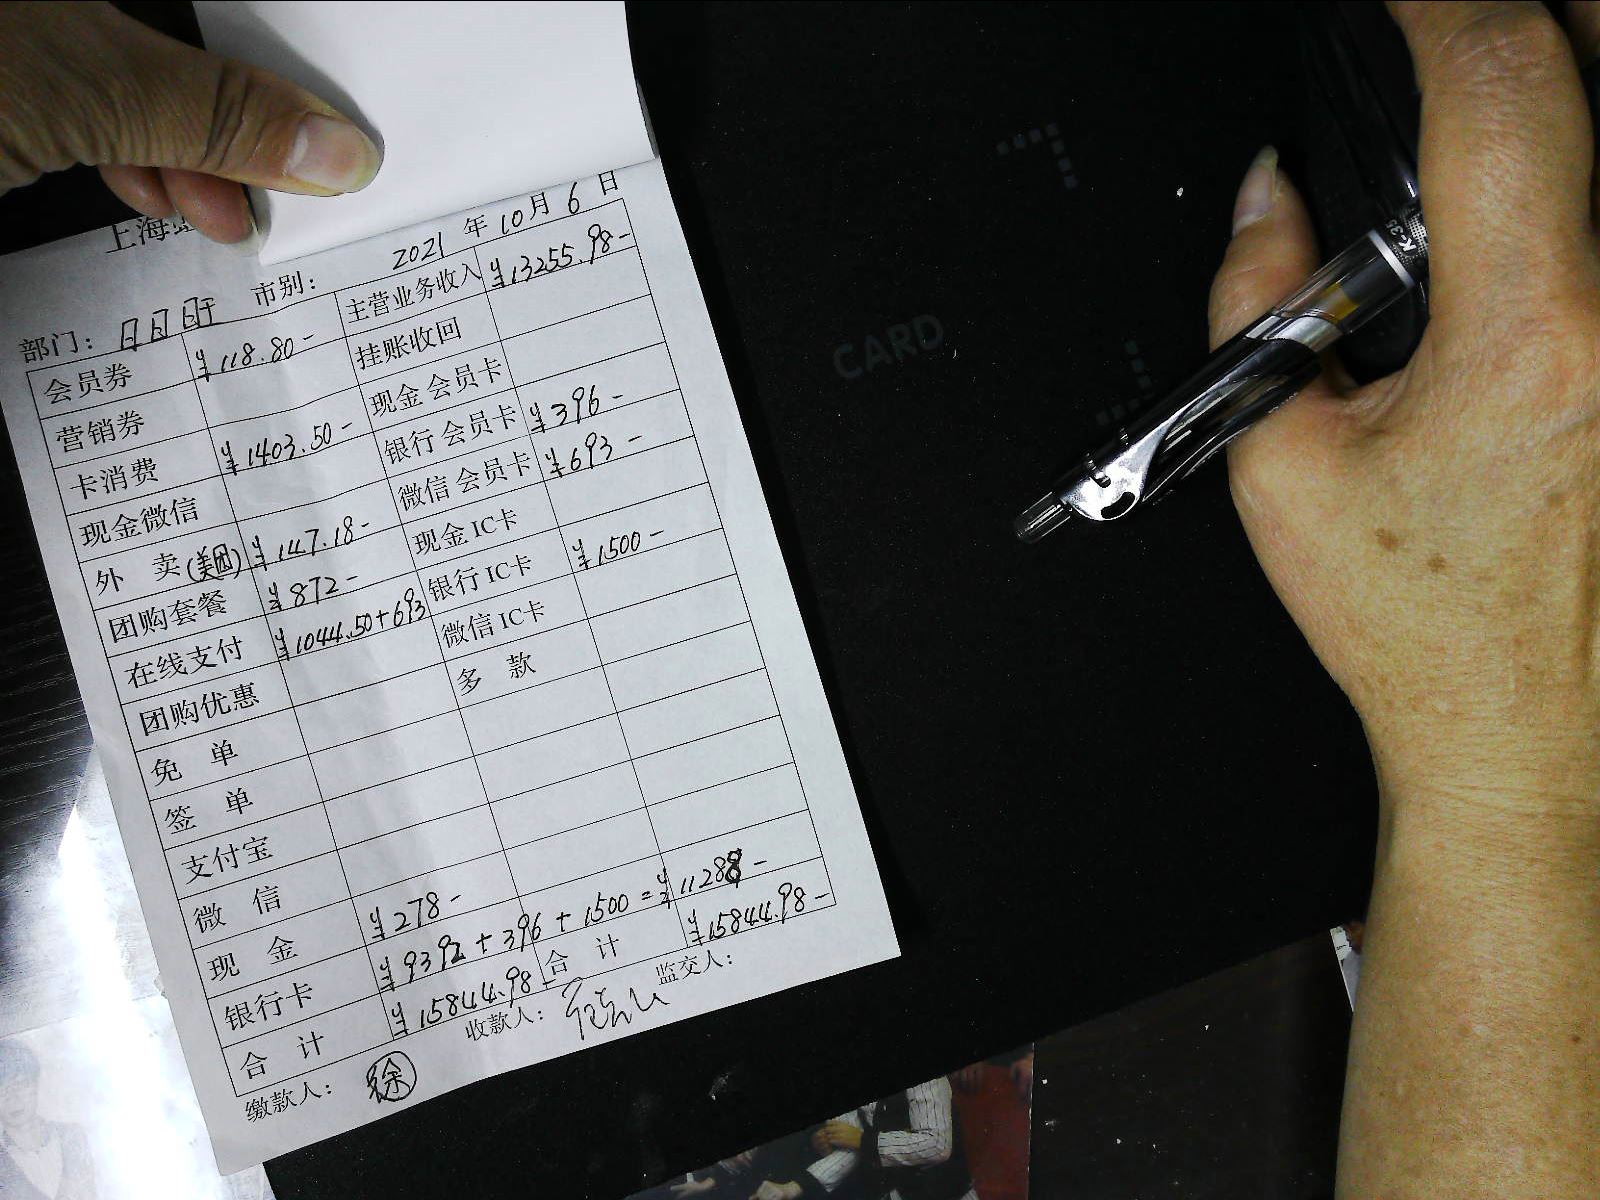 上海
2021 年 10 月 6 日
部门： 日日 市别：
会员券 ¥118.80- 主营业务收入 ¥13255.98-
营销券 挂账收回
卡消费 ¥1403.50- 现金会员卡
现金微信 银行会员卡 ¥396-
外 卖(美团) ¥147.18- 微信会员卡 ¥693-
团购套餐 ¥872- 现金IC卡
在线支付 ¥1044.50+693 银行IC卡 ¥1500-
团购优惠 微信IC卡
免 单 多 款
签 单
支付宝
微 信
现 金 ¥278-
银行卡 ¥9392+396+1500=¥11288-
合 计 ¥15844.98- 合 计 ¥15844.98-
缴款人： 徐 收款人： 监交人：
CARD
K-35